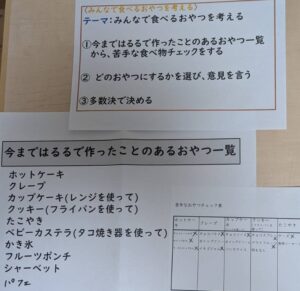 (みんなで食べるおやつを考える)
テーマ:みんなで食べるおやつを考える
①今まではるるで作ったことのあるおやつ一覧
から、苦手な食べ物チェックをする
② どのおやつにするかを選び、意見を言う
③多数決で決める
今まではるるで作ったことのあるおやつ一覧
ホットケーキ
クレープ
カップケーキ(レンジを使って)
クッキー(フライパンを使って)
たこやき
ベビーカステラ(タコ焼き器を使って)
かき氷
フルーツポンチ
シャーベット
パフェ
ホットケーキ
クレープ
たこやき